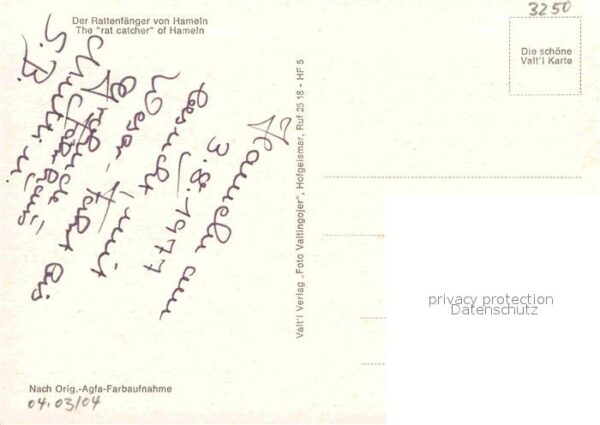 Der Rattenfänger von Hameln
The "rat catcher" of Hameln
3250
Die schöne
Velt'l Karte
Hameln am
3.8.1977
besucht
Weser-
mit
Fahrt bis
Mutti u.
S.B.
Valt'l Verlag „Foto Valtingojer", Hofgeismar, Ruf 25 18 - HF 5
privacy protection
Datenschutz
Nach Orig.-Agfa-Farbaufnahme
04.03/04